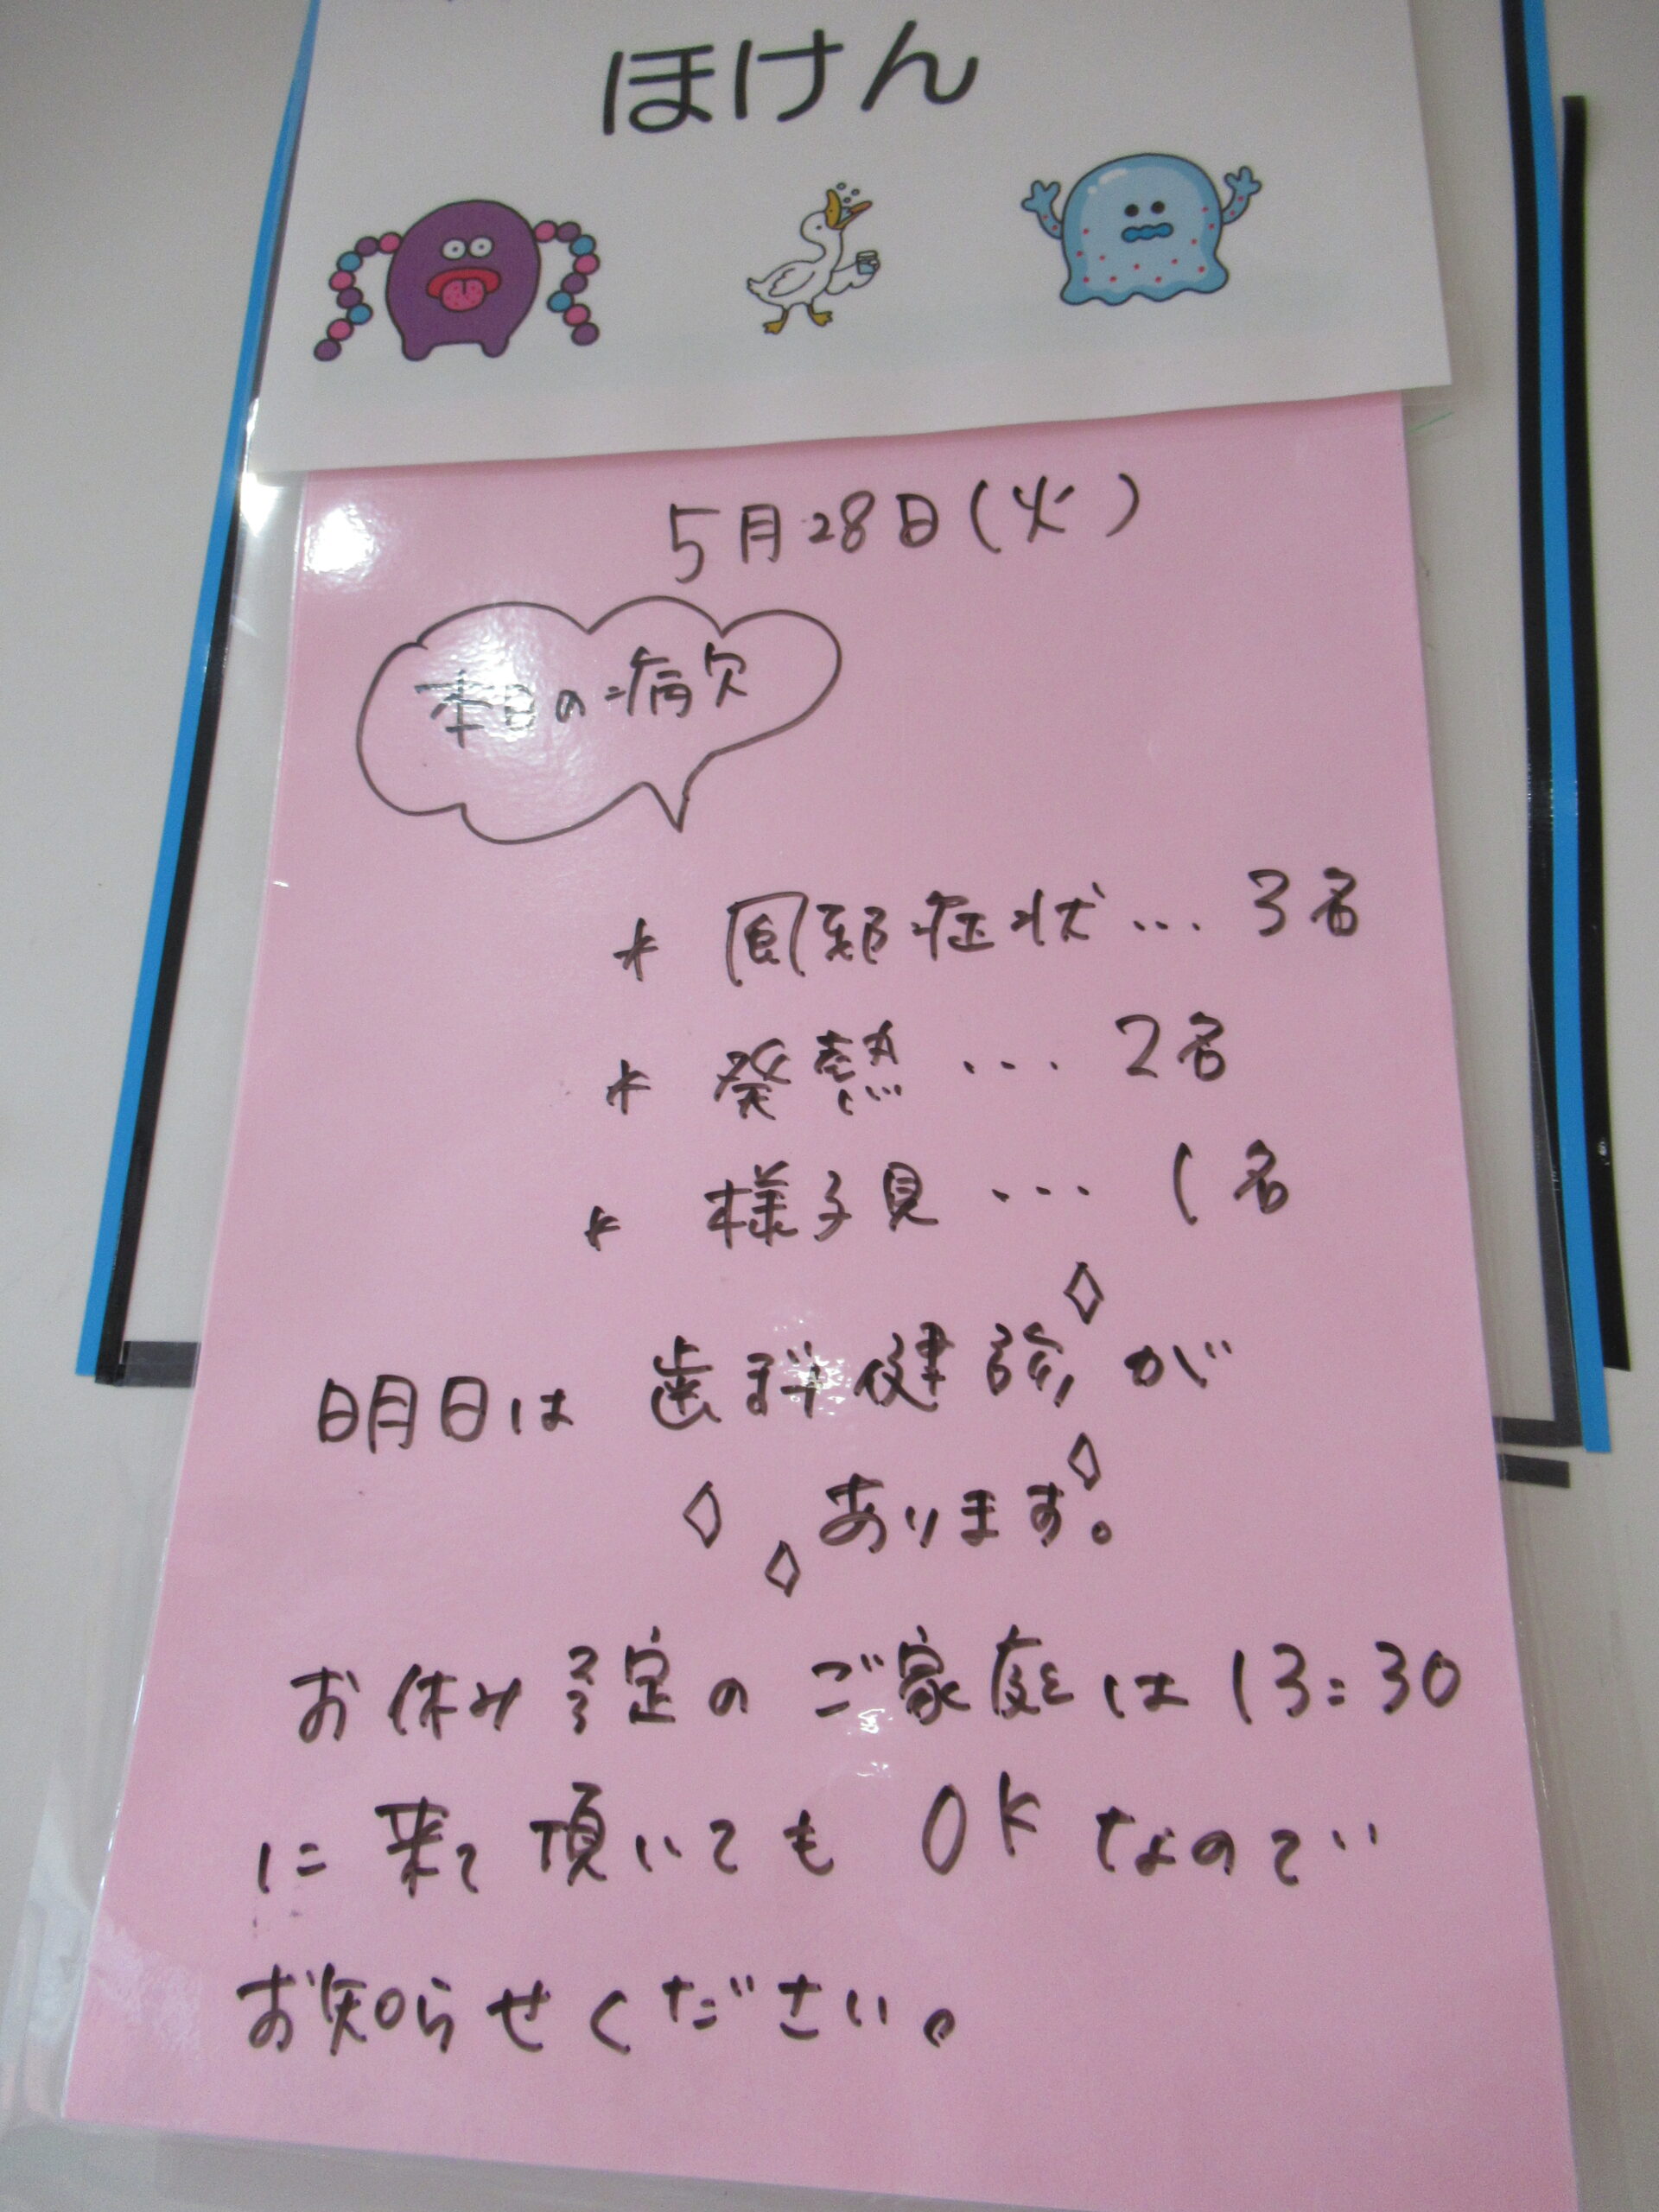 ほけん
5月28日(火)
本日の病欠
* 風邪症状…3名
* 発熱…2名
* 様子見…1名
明日は歯科健診が
あります。
お休み予定のご家庭は13:30
に来て頂いてもOKなので
お知らせください。